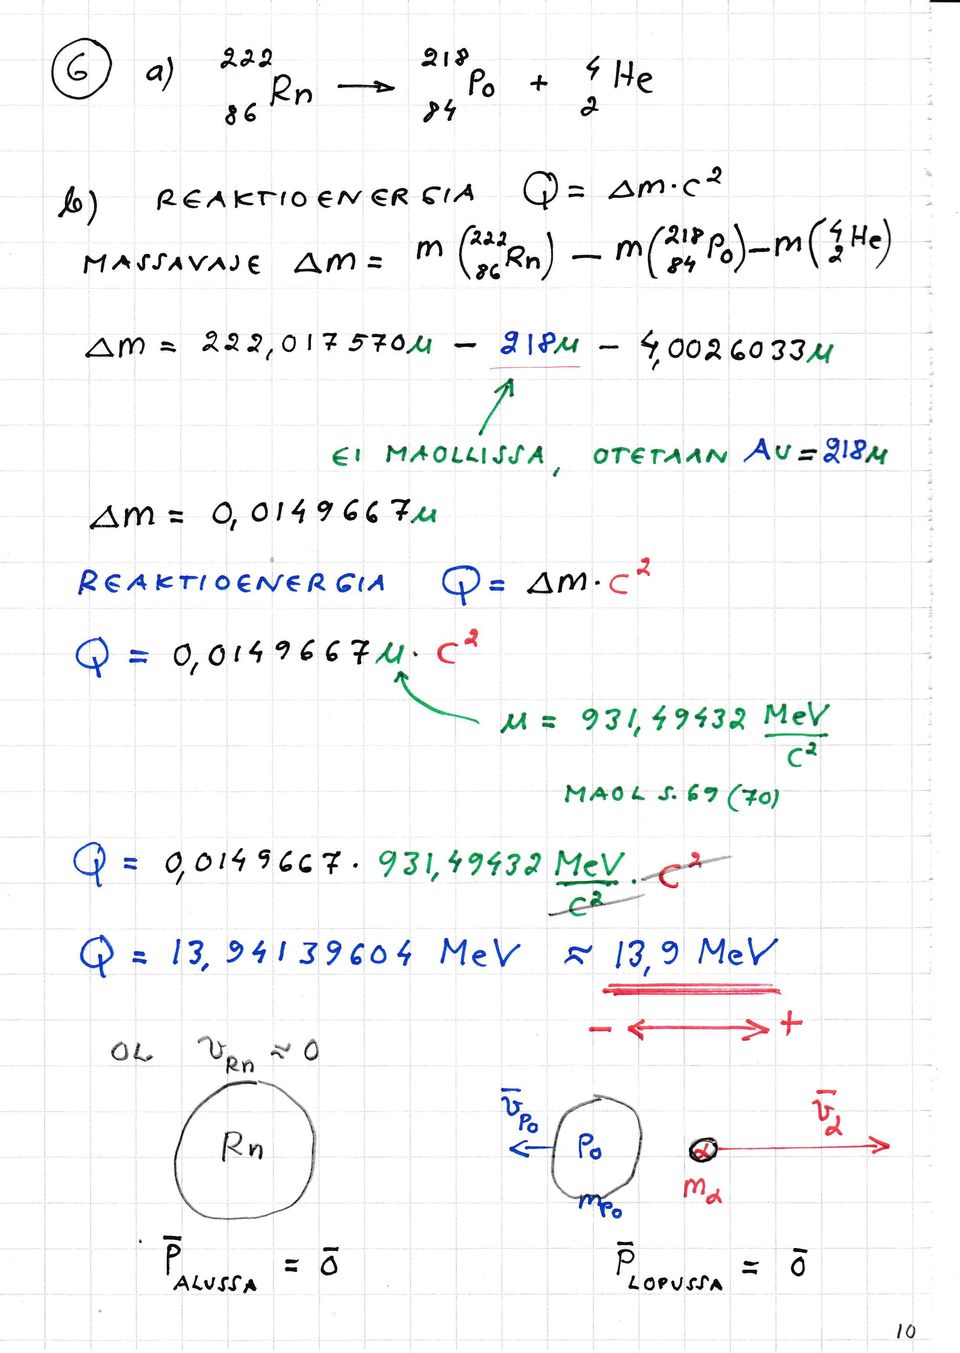 6 a) ²²²₈₆Rn → ²¹⁸₈₄Po + ⁴₂He
b) REAKTIOENERGIA Q = Δm·c²
MASSAVAJE Δm = m(²²²₈₆Rn) – m(²¹⁸₈₄Po) – m(⁴₂He)
Δm = 222,017570u – 218u – 4,0026033u
EI MAOLLISSA, OTETAAN AU = 218u
Δm = 0,0149667u
REAKTIOENERGIA Q = Δm·c²
Q = 0,0149667u·c²
u = 931,49432 MeV/c²
MAOL s. 69 (70)
Q = 0,0149667·931,49432 MeV/c²·c²
Q = 13,94139604 MeV ≈ 13,9 MeV
– +
OL. v_Rn ≈ 0
v̄_Po v̄_α
Rn Po α
m_Po m_α
p̄_ALUSSA = 0̄ p̄_LOPUSSA = 0̄
10